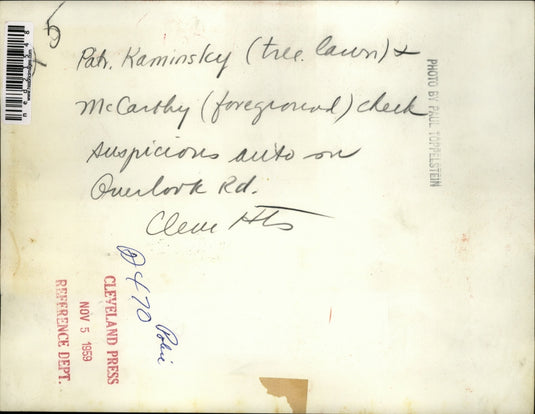 5
Patr. Kaminsky (tree lawn) &
McCarthy (foreground) check
suspicious auto on
Overlook Rd.
Cleve Hts
PHOTO BY PAUL TOPPELSTEIN
470
Police
CLEVELAND PRESS
NOV 5 1959
REFERENCE DEPT.